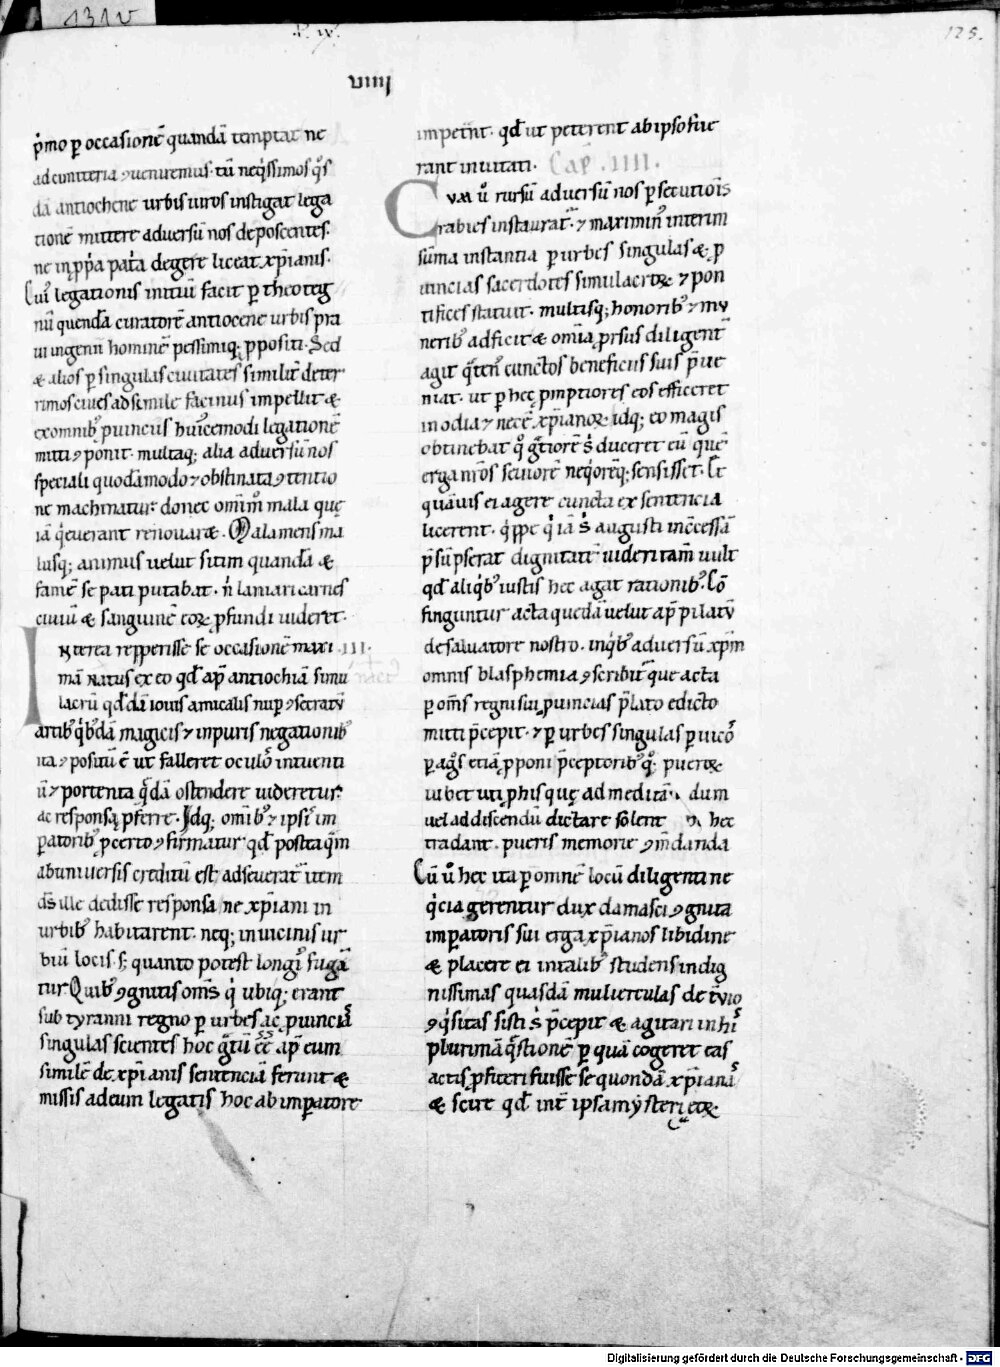 131v
L. IX.
125.
VIIII
p̄mo ꝑ occasionē quandā temptat ne
ad cimiteria ꝯueniremus. tū neq̇ssimos q̊s
dā antiochene urbis uiros instigat lega
tionē mittere adversū nos deposcentes.
ne in ꝓpa pat̓a degere liceat xp̄ianis.
Cui᾿ legationis initiū facit ꝑ theoteg
nū quendā curatorē antiocene urbis pra
ui ingenii hominē pessimiq; ꝓpositi. Sed
& alios ꝑ singulas ciuitates similit̄ deter
rimos ciues ad simile facinus impellit &
ex omnib᾿ ꝓuinciis hui᾿cemodi legationē
mitti ꝯponit. multaq; alia adversū nos
speciali quodāmodo ⁊ obstinata ꝯtentio
ne machinatur donec omīm̊ mala que
iā q̇euerant renouar&. Mala mens ma
lusq; animus uelut sitim quandā &
famē se pati putabat. n̄ laniari carnes
ciuiū & sanguinē eoꝝ ꝓfundi uideret.
Interea repperisse se occasionē maxi .III.
mā natus ex eo qd̄ ap̄ antiochiā simu
lacrū qd̄dā iouis amicalis nuꝑ ꝯsecratū
artib᾿ q̇b᾿dā magicis ⁊ inpuris negationib᾿
ita ꝯpositū ē ut falleret oculos intuenti
ū ⁊ portenta q̄dā ostendere uideretur
ac responsa ꝓferre. Idq; omib᾿ ⁊ ipsis im
ꝑatorib᾿ ꝓcerto ꝯfirmatur qd̄ postea q̄m
ab uniuersis creditū est adseuerat itē m
d̄s ille dedisse responsa ne xp̄iani in
urbib᾿ habitarent. neq; in uicinis ur
biū locis. s; quanto potest longi᾿ fugā
tur. Quib᾿ ꝯgnitis om̄s q̇ ubiq; erant
sub tyranni regno ꝑ urbes ac ꝓuincias
singulas scientes hoc g̃tū ēē ap̄ eum
similē de xp̄ianis sententiā ferunt &
missis ad eum legatis hoc ab imꝑatore
impet̄nt. qd̄ ut peterent ab ipso fue
rant inuitati. Cap. IIII.
Cum ū rursū adversū nos ꝑsecutiois
rabies instaurat̄. ⁊ maximin᾿ interim
sūma instantia ꝑ urbes singulas & ꝓ
uincias sacerdotes simulacroꝝ ⁊ pon
tifices statuit. multisq; honorib᾿ ⁊ mu
nerib᾿ adficit & omia ꝓrsus diligent̄
agit q̄ten᾿ cunctos beneficiis suis p̄ue
niat. ut ꝑ hec ꝓmptiores eos efficeret
in odia ⁊ necē xp̄ianoꝝ idq; eo magis
obtinebat q᾿ g̃tiorē s̓ duceret eū quē
erga nr̄os seuiorē neq̇orēq; sensisset. Et
quāuis ei agere cuncta ex sentencia
licerent. q̇ppe q̇ iā s̓ augusti inc̄cessā
p̄sūpserat dignitatē uideri tam̄ uult
qd̄ aliq̇b᾿ iustis hec agat rationib᾿. Cō
finguntur acta quedā uelut ap̄ pilatū
de saluatore nostro. in q̇b᾿ aduersū xp̄m
omnis blasphemia ꝯscribit᾿ que acta
ꝑ om̄s regni sui ꝓuincias p̄lato edicto
mitti p̄cepit. ⁊ ꝑ urbes singulas ꝑ uicos
ꝑ ag̊s etiā ꝓponi p̄ceptorib᾿ q᾿; pueroꝝ
iubet uti ꝓ his que ad meditā dum
uel addiscendū dictare solent hec
tradant. pueris memorie ꝯm̄danda
Cū ū hec ita ꝑ omnē locū diligenti ne
q̇cia gerentur dux damasci ꝯgnita
imꝑatoris sui erga xp̄ianos libidine
& placere ei in talib᾿ studens indig
nissimas quasdā mulierculas de tyrio
ꝯq̇sitas sisti s̓ p̄cepit & agitari in his
plurimā q̄stionē ꝑ quā cogeret eas
actis ꝓfiteri fuisse se quondā xp̄ianas
& scire qd̄ int̄ ipsa mysteria eoꝝ
Digitalisierung gefördert durch die Deutsche Forschungsgemeinschaft - DFG